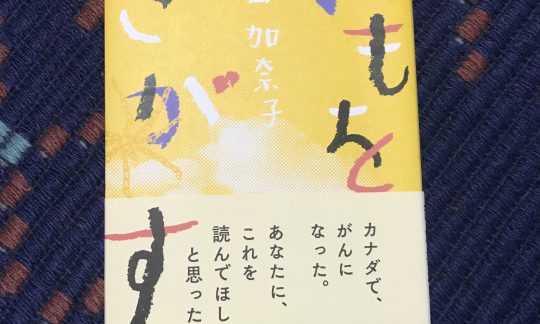 もを
加奈子
がす
カナダで、
がんに
なった。
あなたに、
これを
読んでほし
と思った